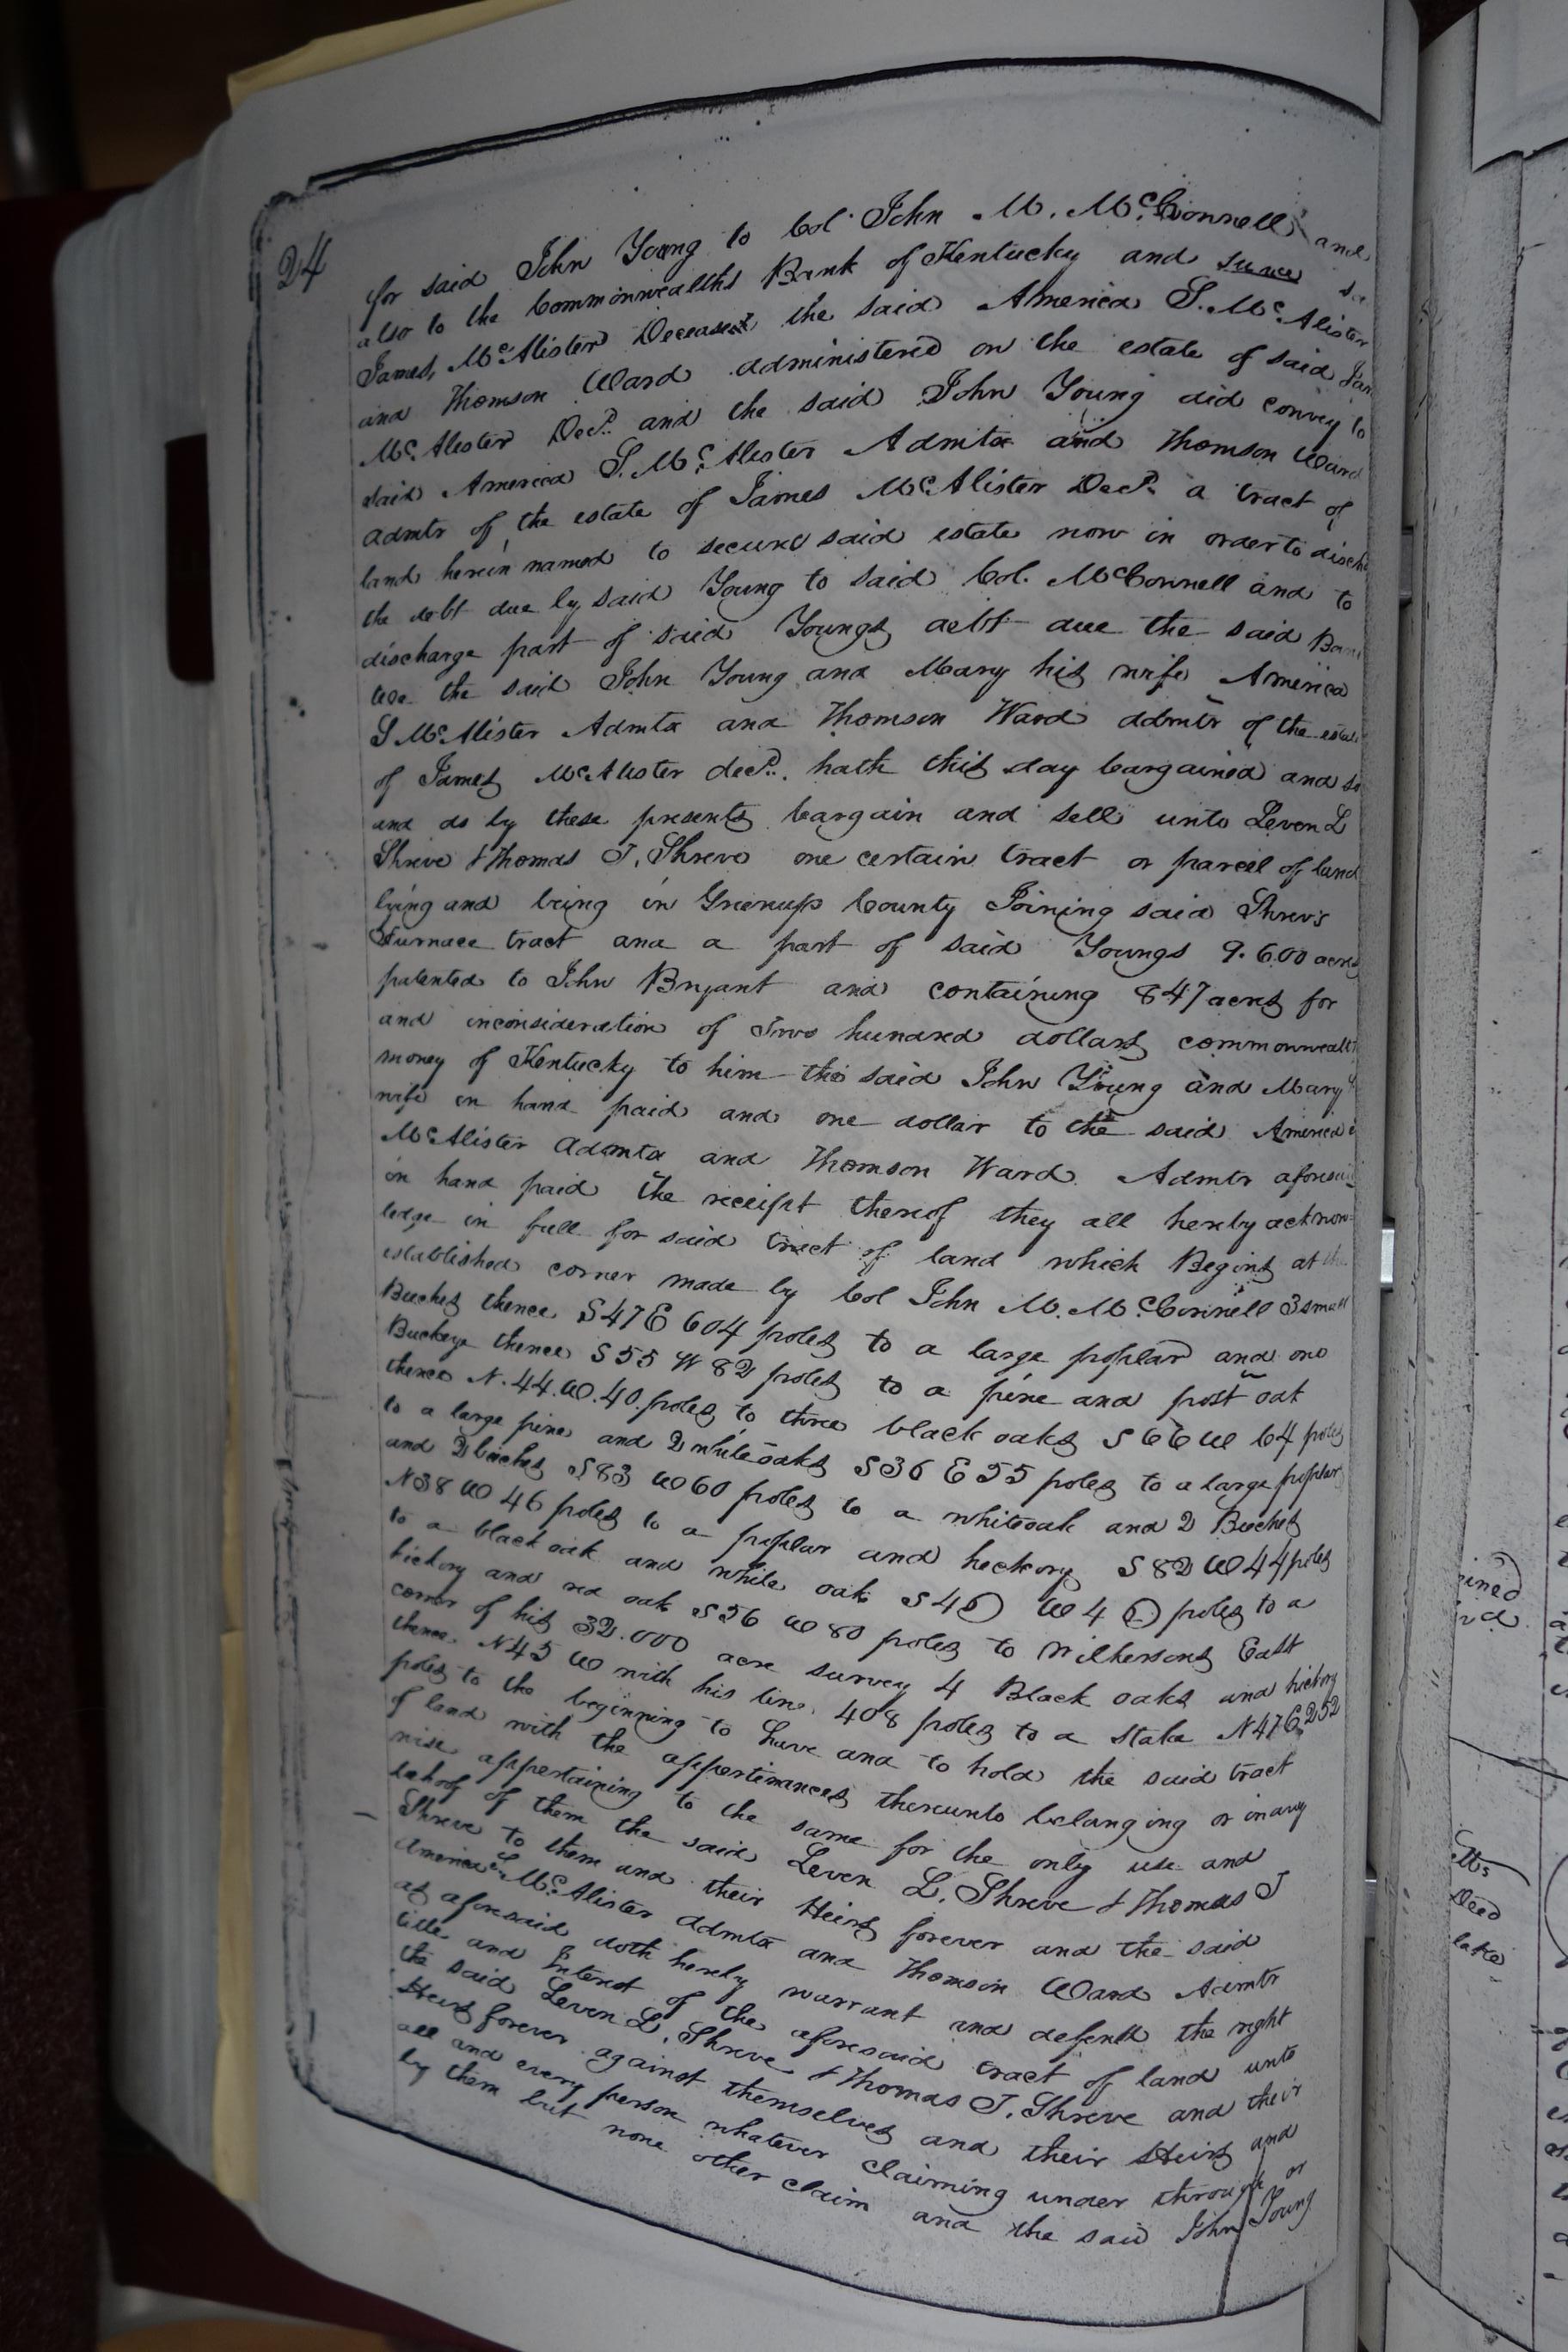 24
for said John Young to Col John M. McConnell and
also to the Commonwealths Bank of Kentucky and
James McAlister Deceased the said America S. McAlister
and Thomson Ward administered on the estate of said Jam
McAlester Decd. and the said John Young did convey to
said America S. McAlester Admtx and Thomson Ward
admtr of the estate of James McAlister Decd. a tract of
land herein named to secure said estate now in order to disch
the debt due by said Young to said Col. McConnell and to
discharge part of said Youngs debt due the said Ban
We the said John Young and Mary his wife America
S McAlister Admtx and Thomson Ward admtr of the estate
of James McAlester decd. hath this day bargained and so
and do by these presents bargain and sell unto Leven L
Shreve & Thomas J. Shreve one certain tract or parcel of land
lying and being in Greenup County Joining said Shrevs
Furnace tract and a part of said Youngs 9.600 acres
patented to John Bryant and containing 847 acres for
and inconsideration of Two hundred dollars commonwealth
money of Kentucky to him the said John Young and Mary
wife in hand paid and one dollar to the said America
McAlister admtx and Thomson Ward Admtr aforesaid
in hand paid the receipt thereof they all hereby acknow
ledge in full for said tract of land which Begins at the
established corner made by Col John M. McConnell 3 small
Buches thence S47E 604 poles to a large poplar and one
Buckeye thence S55 W 82 poles to a pine and post oak
thence N.44.W.40.poles to three black oaks S66W 64 poles
to a large pine and 2 whiteoaks S36 E 55 poles to a large poplar
and 2 beches S83 W60 poles to a whiteoak and 2 Beeches
N38 W 46 poles to a poplar and heckory S82 W44 poles
to a black oak and white oak S40 W 40 poles to a
hickory and red oak S56 W80 poles to Wilkersons East
corner of his 32.000 acre survey 4 Black oaks and hickory
thence N45 W with his line 408 poles to a Stake N47E 252
poles to the beginning to have and to hold the said tract
of land with the appertinances thereunto belanging or inany
wise appertaining to the same for the only use and
behoof of them the said Leven L. Shreve & Thomas J
Shreve to them and their Heirs forever and the said
America S McAlister admtx and Thomson Ward Admtr
as aforesaid doth hereby warrant and defend the right
title and Interest of the aforesaid tract of land unto
the said Leven L. Shreve & Thomas J. Shreve and their
Heirs forever against themselves and their Heirs and
all and every person whatever claiming under through or
by them but none other claim and the said John Young
Deed